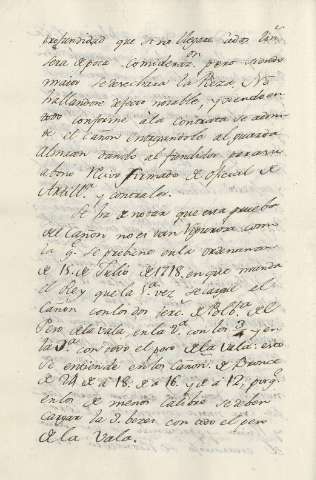 profundidad que si no llegare a dos lin.s
sera de poca considerac.on pero siendo
maior se desechara la Pieza. No
hallandose defecto notable, y siendo en
todo conforme a la Contrata se admi-
te el Cañon entregandolo al guarda
Almacen dando al fundidor para su
abono recivo firmado de oficial de
Artill.a y contralor.
Se ha de notar que esta prueba
del Cañon no es tan rigurosa como
la q. se prebiene en la ordenanza
de 15. de Julio de 1718. en que manda
el Rey que la 1.a vez se cargue el
Cañon con los dos terc.s de Polb.a del
Peso de la vala en la 2.a con los 3/4 y en
la 3.a con todo el peso de la Vala: esto
se entiende en los Cañon.s de Bronce
de 24 de a 18. de a 16. y de a 12, porq.
en los de menor calibre se deben
cargar las 3. bezes con todo el peso
de la Vala.